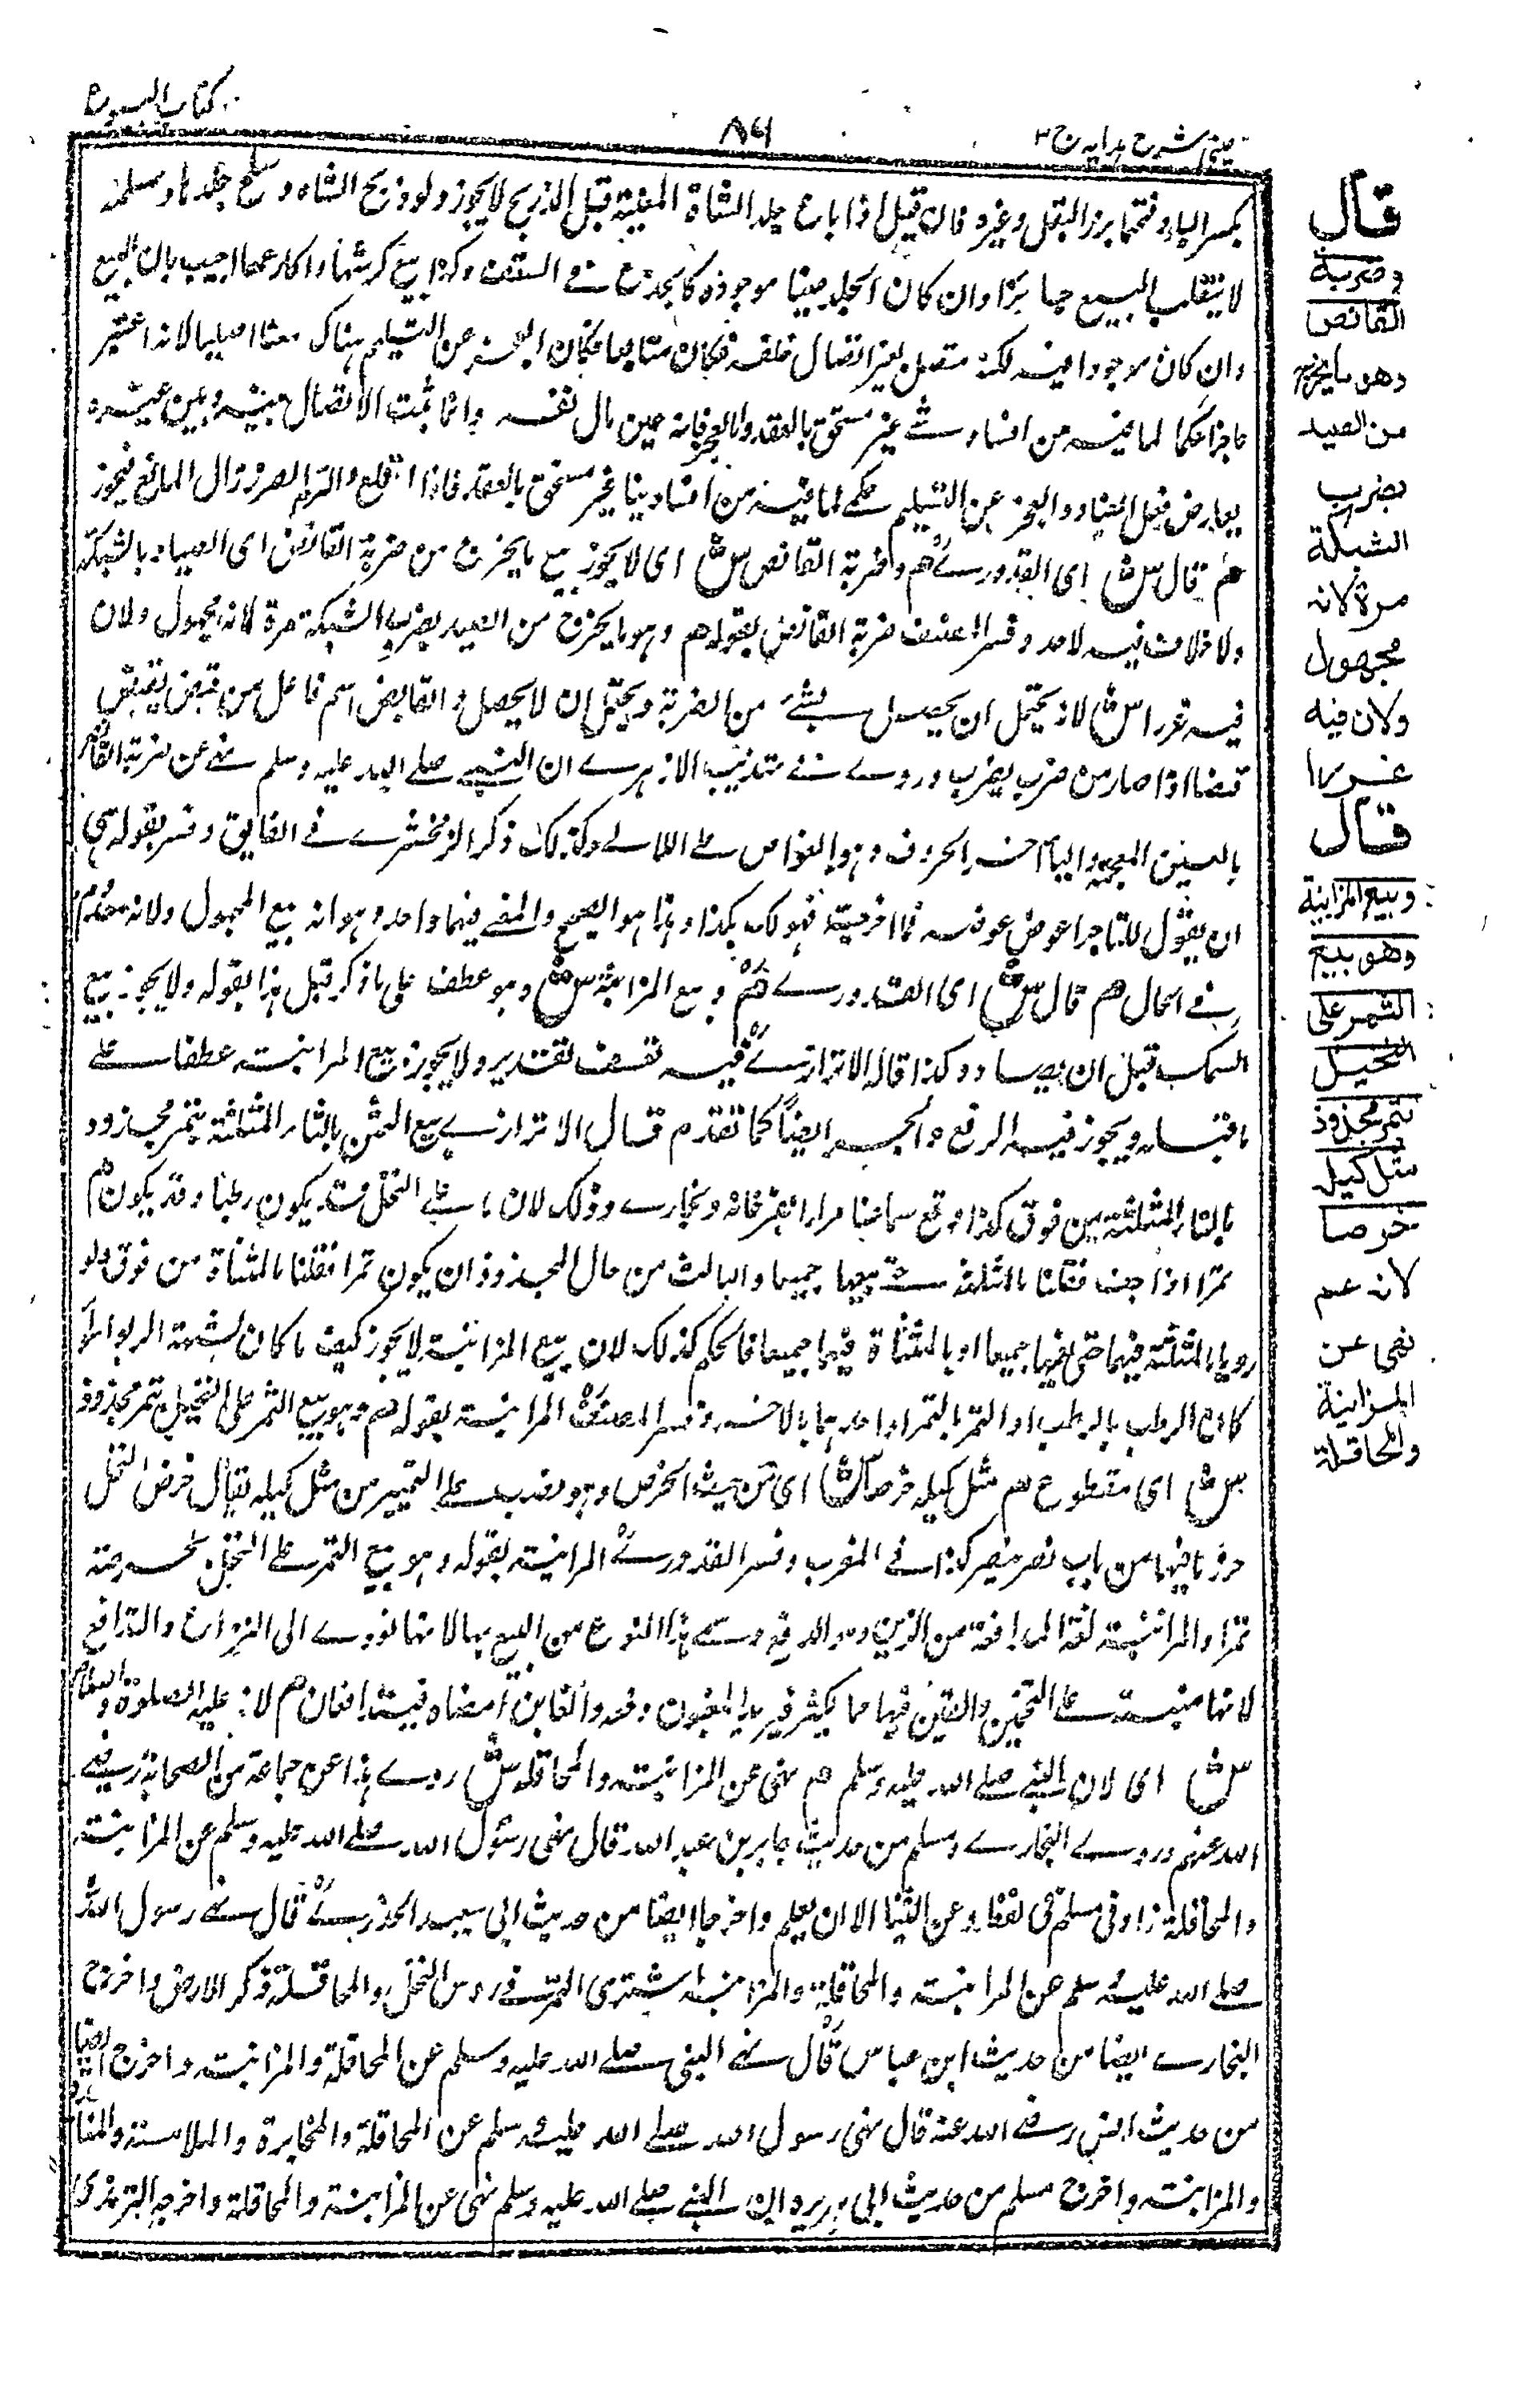 كتاب البيوع
٨٦
عيني شرح هدايه ج ٣
بكسر الباء وفتحها بزر البقل وغيره فان قيل اذا باع جلد الشاة المعينة قبل الذبح لا يجوز ولو ذبح الشاة وسلخ جلدها وسلمه
لا ينقلب البيع جائزا وان كان الجلد عينا موجودة كالجذع في السقف وكذا بيع كرشها واكارعها اجيب بان المبيع
وان كان موجودا فيه لكنه متصل بغيره اتصال خلقة فكان تابعا فكان العجز عن التسليم هناك معنا اصليا لا انه اعتبر
عاجزا حكما لما فيه من افساد شئ غير مستحق بالعقد واما الجذع فانه عين مال في نفسه وانما ثبت الاتصال بينه وبين غيره
بعارض فعل العباد والعجز عن التسليم حكمي لما فيه من افساد بناء غير مستحق بالعقد فاذا قلع والتزم الضرر زال المانع فيجوز
هم قال ش اى القدورى هم وضربة القانص ش اى لا يجوز بيع ما يخرج من ضربة القانص اى الصياد بالشبكة
ولا خلاف فيه لاحد وفسر المصنف ضربة القانص بقوله هم وهو ما يخرج من الصيد بضرب الشبكة مرة لانه مجهول ولان
فيه غررا ش لانه يحتمل ان يحصل شئ من الضربة ويحتمل ان لا يحصل والقابض اسم فاعل من قبض يقبض
قنصا اذا صار من ضرب يضرب وروى في تهذيب الازهرى ان النبى صلى الله عليه وسلم نهى عن ضربة القانص
بالغين المعجمة والياء اخر الحروف وهو الغواص على اللآلى وكذلك ذكر الزمخشرى فى الفايق وفسر بقوله هى
ان يقول للتاجر اغوص غوصة فما اخرجته فهو لك بكذا وهذا هو الصحيح والمعنى فيهما واحد وهو انه بيع المجهول ولانه معدوم
فى الحال هم قال ش اى القدورى هم وبيع المزابنة ش وهو عطف على ما ذكر قبل هذا بقوله ولا يجوز بيع
السمك قبل ان يصطاد وكذا قاله الاترازى فيه تعسف لتقدير ولا يجوز بيع المزابنة عطفا على
ما قبله ويجوز فيه الرفع والجر ايضًا كما تقدم قال الاترازى بيع الثمر بالثاء المثلثة بتمر مجذوذ
بالتاء المثلثة من فوق كذا وقع سماعنا مرارا بفرغانة وبخارى وذلك لان ما على النخل قد يكون رطبا وقد يكون هم
تمرا اذا جف فقلنا بالمثلثة حتى يعمها جميعا والبالث من حال المجذوذ ان يكون تمرا فقلنا بالمثناة من فوق ولو
رويا بالمثلثة فيهما حتى يعمها جميعا او بالمثناة فيهما جميعا فالحكم كذلك لان بيع المزابنة لا يجوز كيف ما كان لشبهة الربوا
كما فى الرطب بالرطب او التمر بالتمر او احدهما بالاخر وفسر المصنف المزابنة بقوله هم وهو بيع الثمر على النخيل بتمر مجذوذ
ش اى مقطوع هم مثل كيله خرصا ش اى من حيث الخرص وهو نصب على التمييز من مثل كيله يقال خرص النخل
حرز ما فيها من باب نصر ينصر كذا فى المغرب وفسر القدورى المزابنة بقوله وهو بيع الثمر على النخل بخرصه
تمرا والمزابنة لغة المدافعة من الزبن وهو الدفع وسمى هذا النوع من البيع بها لانها تؤدى الى النزاع والتدافع
لانها مبنية على التخمين والغبن فيها مما يكثر فيريد المغبون دفعه والغابن امضاه فيتدافعان هم لانه عليه الصلوة والسلام
ش اى لان النبى صلى الله عليه وسلم هم نهى عن المزابنة والمحاقلة ش روى هذا عن جماعة من الصحابة رضى
الله عنهم وروى البخارى ومسلم من حديث جابر بن عبد الله قال نهى رسول الله صلى الله عليه وسلم عن المزابنة
والمحاقلة زاد فى مسلم فى لفظ وعن الثنيا الا ان يعلم واخرجا ايضا من حديث ابى سعيد الخدرى قال نهى رسول الله
صلى الله عليه وسلم عن المزابنة والمحاقلة والمزابنة اشترى الثمر فى رؤس النخل والمحاقلة ذكر الارض واخرج
البخارى ايضا من حديث ابن عباس قال نهى النبى صلى الله عليه وسلم عن المحاقلة والمزابنة واخرج ايضا
من حديث انس رضى الله عنه قال نهى رسول الله صلى الله عليه وسلم عن المحاقلة والمخابرة والملامسة والمنابذة
والمزابنة واخرج مسلم من حديث ابى هريره ان النبى صلى الله عليه وسلم نهى عن المزابنة والمحاقلة واخرجه الترمذى
قال
وضربة
القانص
وهو ما يخرج
من الصيد
بضرب
الشبكة
مرة لانه
مجهول
ولان فيه
غررا
قال
وبيع المزابنة
وهو بيع
الثمر على
النخيل
بتمر مجذوذ
مثل كيله
خرصا
لانه عم
نهى عن
المزابنة
والمحاقلة